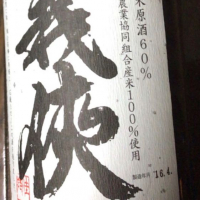 米原酒60%
農業協同組合産米100%使用
義侠
製造年月 '16.4.